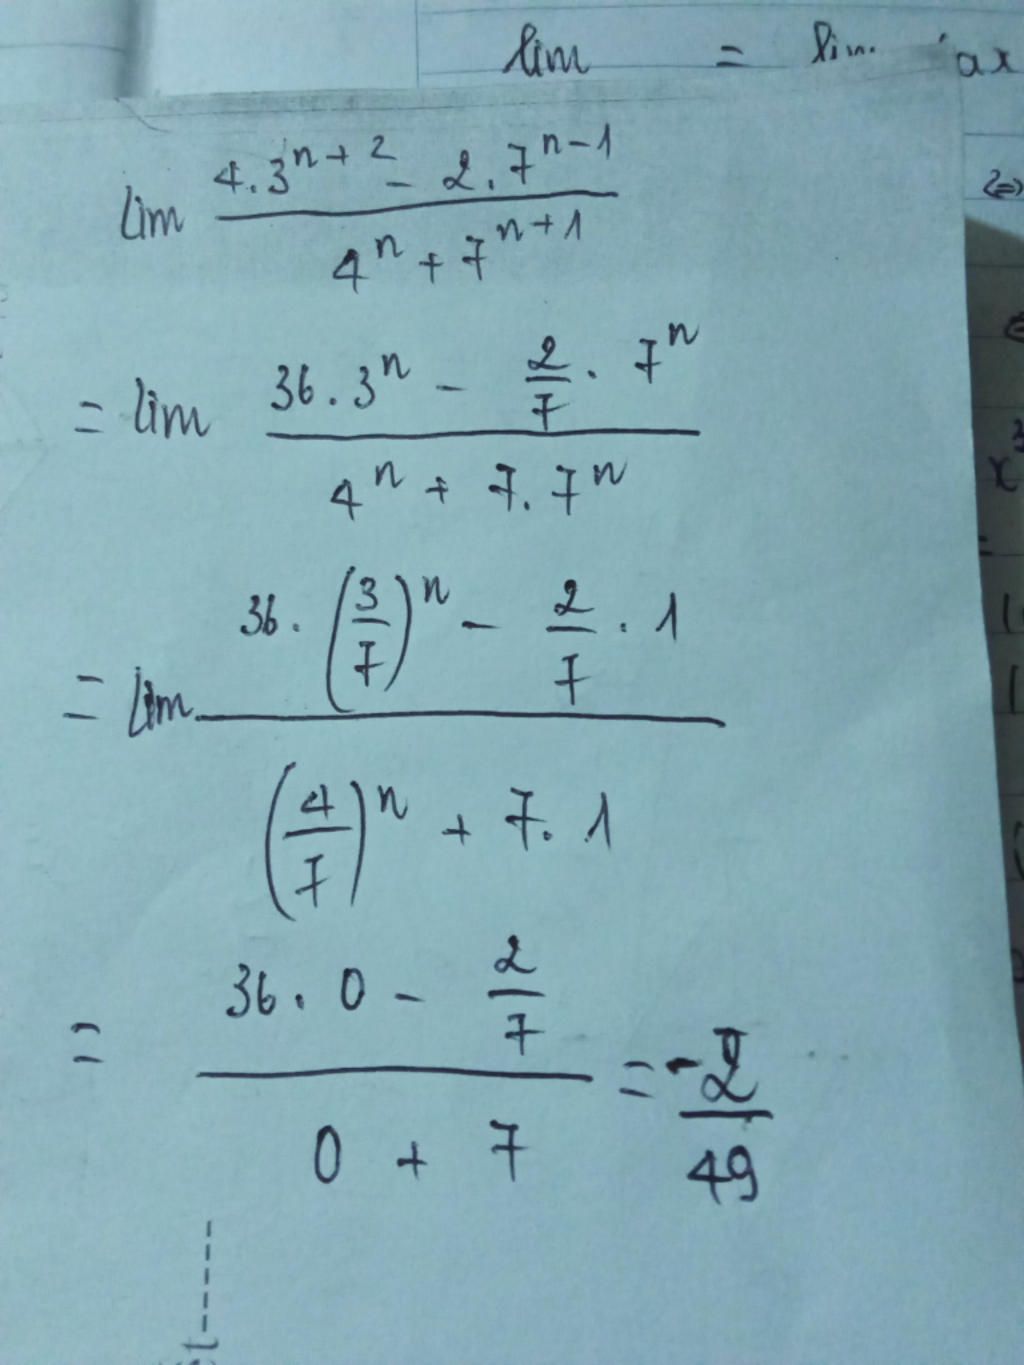 lim = lim ax
lim (4.3^(n+2) - 2.7^(n-1)) / (4^n + 7^(n+1))
= lim (36.3^n - 2/7 . 7^n) / (4^n + 7.7^n)
= lim (36.(3/7)^n - 2/7 . 1) / ((4/7)^n + 7.1)
= (36.0 - 2/7) / (0 + 7) = -2/49